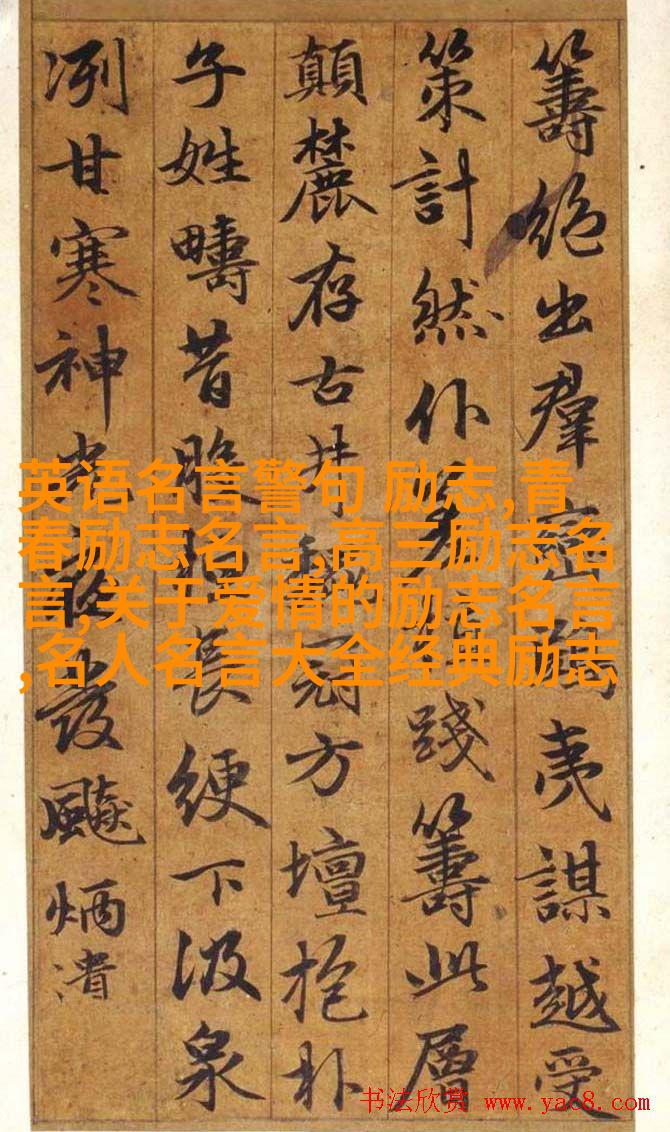 籌絕出羣夷謀越受
策計然仆踐籌此層
顛麓存古井冠方壇抱朴
子姓疇昔長綆下汲泉
冽甘寒神光發飈炳潰
英语名言警句 励志,青
春励志名言,高三励志名
言,关于爱情的励志名言
,名人名言大全经典励志
书法欣赏 www.yac8.com